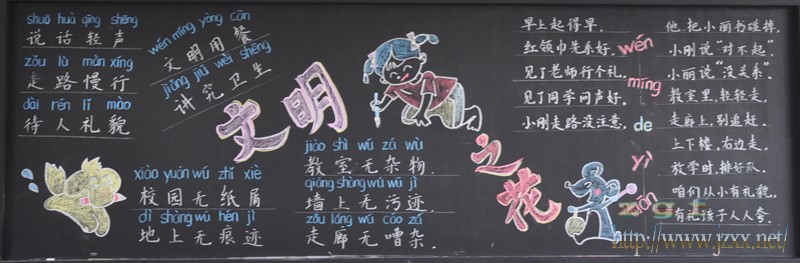 shuō huà qīng shēng
说话轻声
zǒu lù màn xíng
走路慢行
dài rén lǐ mào
待人礼貌
wén míng yòng cān
文明用餐
jiǎng jiū wèi shēng
讲究卫生
文明之花
wén míng de yī
xiào yuán wú zhǐ xiè
校园无纸屑
dì shàng wú hén jì
地上无痕迹
jiào shì wú zá wù
教室无杂物
qiáng shàng wú wū jì
墙上无污迹
zǒu láng wú cáo zá
走廊无嘈杂.
早上起得早,
红领巾先系好.
见了老师行个礼,
见了同学问声好.
小刚走路没注意,
他把小丽书碰掉,
小刚说“对不起”.
小丽说“没关系”.
教室里,轻轻走,
走廊上,别追赶.
上下楼,右边走,
放学时,排好队.
咱们从小有礼貌,
有礼孩子人人夸.
http://www.jzxx.net/